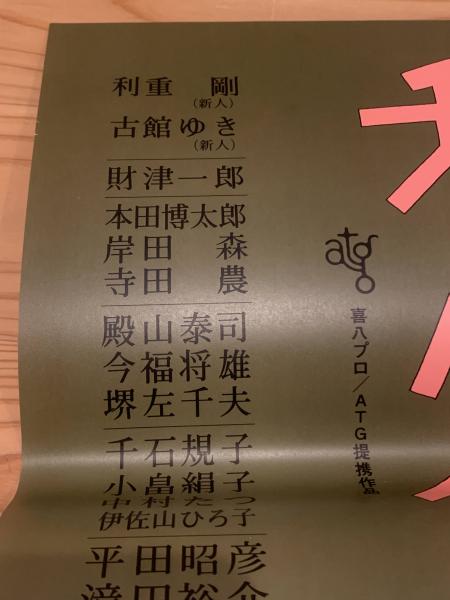 利重 剛
(新人)
古館ゆき
(新人)
財津一郎
本田博太郎
岸田 森
寺田 農
殿山泰司
今福将雄
堺左千夫
千石規子
小畠絹子
中村たつ
伊佐山ひろ子
平田昭彦
atg
喜八プロ/ATG提携作品